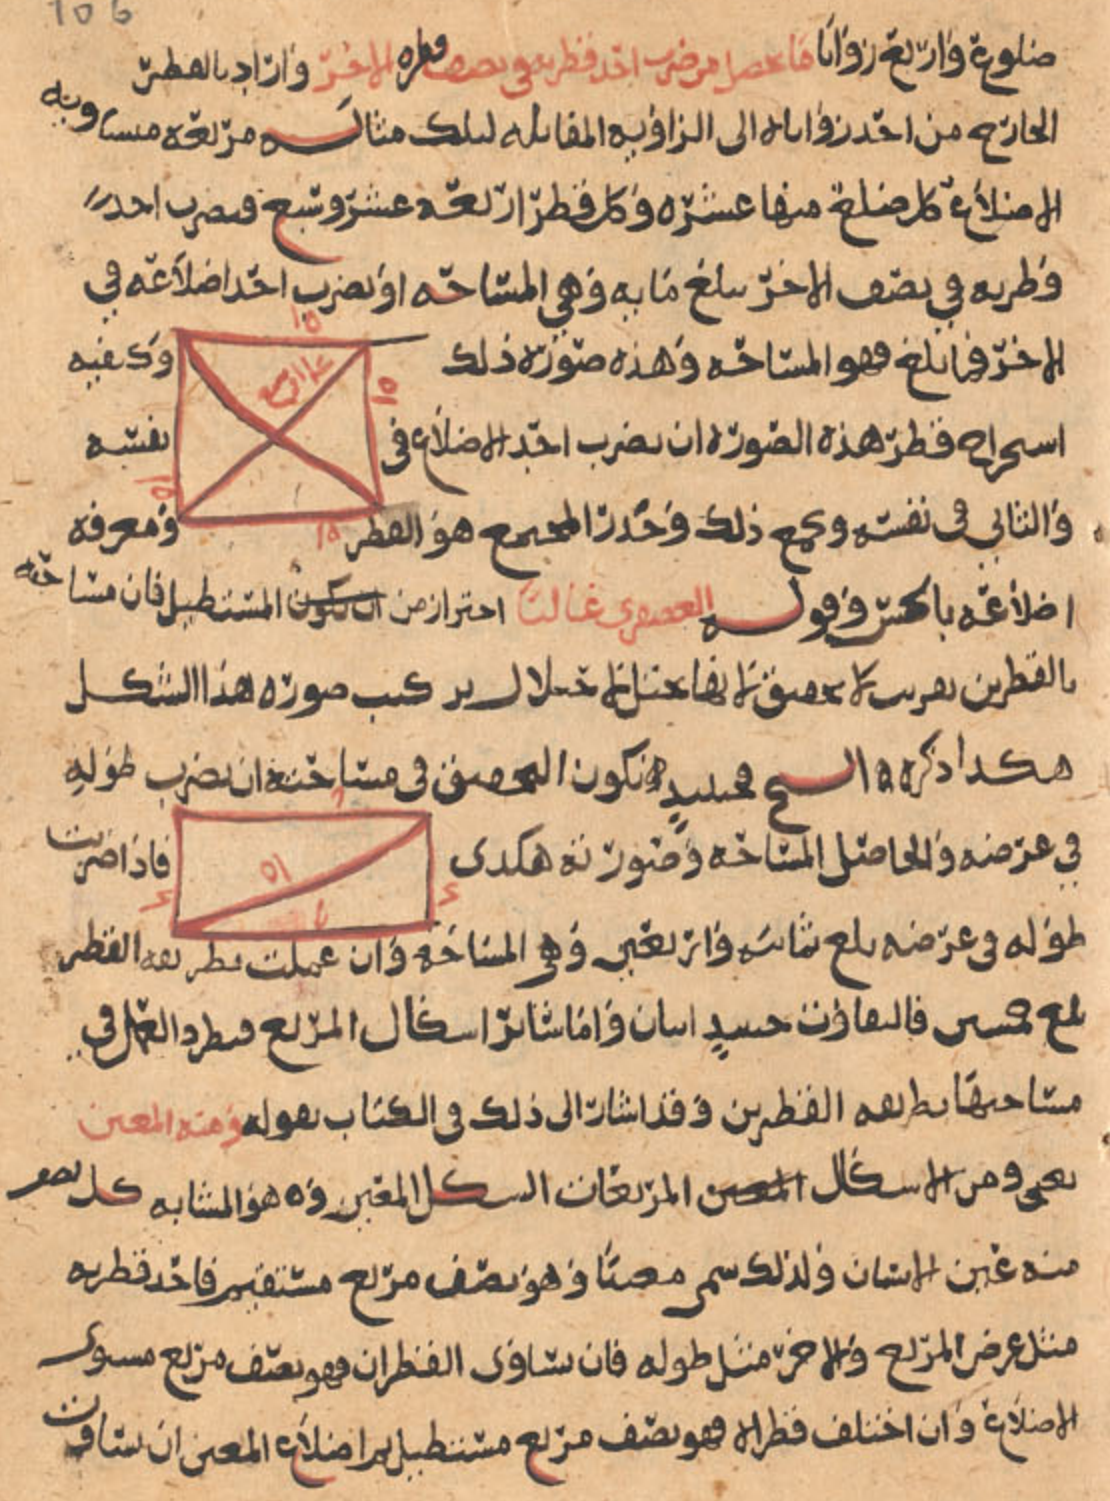 106
ضلوع وأربع زوايا فما حصل من ضرب احد قطريه في نصف قطره الاخر واراد بالقطر
الخارج من احد زواياه الى الزاويه المقابله لتلك مثاله مربعه متساويه
الاضلاع كل ضلع منها عشره وكل قطر اربعه عشر وسبع فتضرب احد
قطريه في نصف الاخر يبلغ مايه وهي المساحه او تضرب احد اضلاعه في
الاخر فما بلغ فهو المساحه وهذه صورة ذلك وكيفيه
استخراج قطر هذه الصوره ان تضرب احد الاضلاع في نفسه
والثاني في نفسه وتجمع ذلك وجذر المجتمع هو القطر ومعرفة
اضلاعه بالعكس وقوله العصيفري غالبا احترازمن ان يكون المستطيل فان مساحته
بالقطرين تقريب لا تحقيق لانها تختل لاختلال تركيب صورة هذا الشكل
هكذا ذكره الشيخ فحينئذ يكون التحقيق في مساحته ان تضرب طوله
في عرضه والحاصل المساحه وصورته هكذى فاذا ضربت
طوله في عرضه بلغ ثمانيه واربعين وهي المساحه وان عملت بطريقه القطر
بلغ خمسين فالتفاوت حينئذ اثنان واما سائر اشكال المربع فيطرد العمل في
مساحتها بطريقه القطرين وقد اشار الى ذلك في الكتاب بقوله ومنه المعين
يعني ومن الاشكال المعين المربعات الشكل المعين وهو المشابه كل نصف
منه عين الانسان ولذلك سمي معينا وهو نصف مربع مستقيم فاحد قطريه
مثل عرض المربع والاخر مثل طوله فان تساوى القطران فهو نصف مربع مستوى
الاضلاع وان اختلف قطراه فهو نصف مربع مستطيل اضلاع المعين ان تساوت